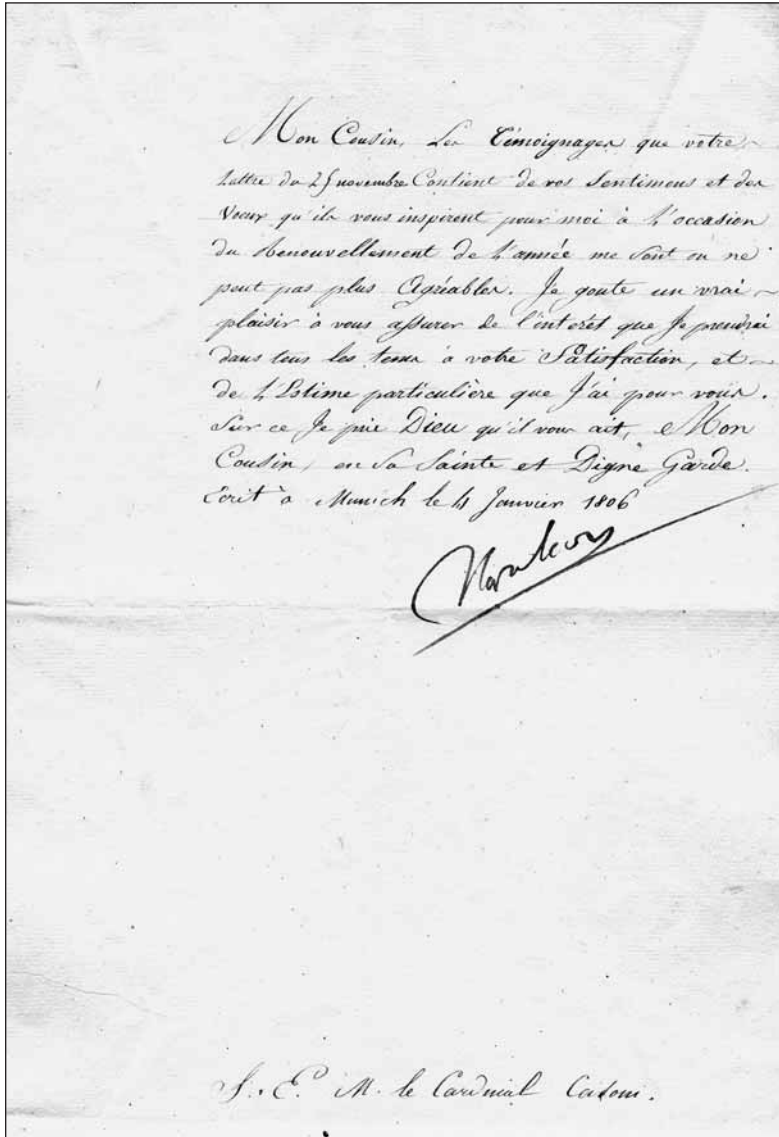 Mon Cousin, Les Témoignages que votre
Lettre du 25 novembre Contient de vos Sentimens et des
Voeux qu'ils vous inspirent pour moi à l'occasion
du Renouvellement de l'année me sont on ne
peut pas plus Agréables. Je goute un vrai
plaisir à vous assurer de l'interêt que Je prendrai
dans tous les tems à votre Satisfaction, et
de l'Estime particulière que J'ai pour vous.
Sur ce Je prie Dieu qu'il vous ait, Mon
Cousin, en Sa Sainte et Digne Garde.
Ecrit à Munich le 4 Janvier 1806
Napoleon
S. E. M. le Cardinal